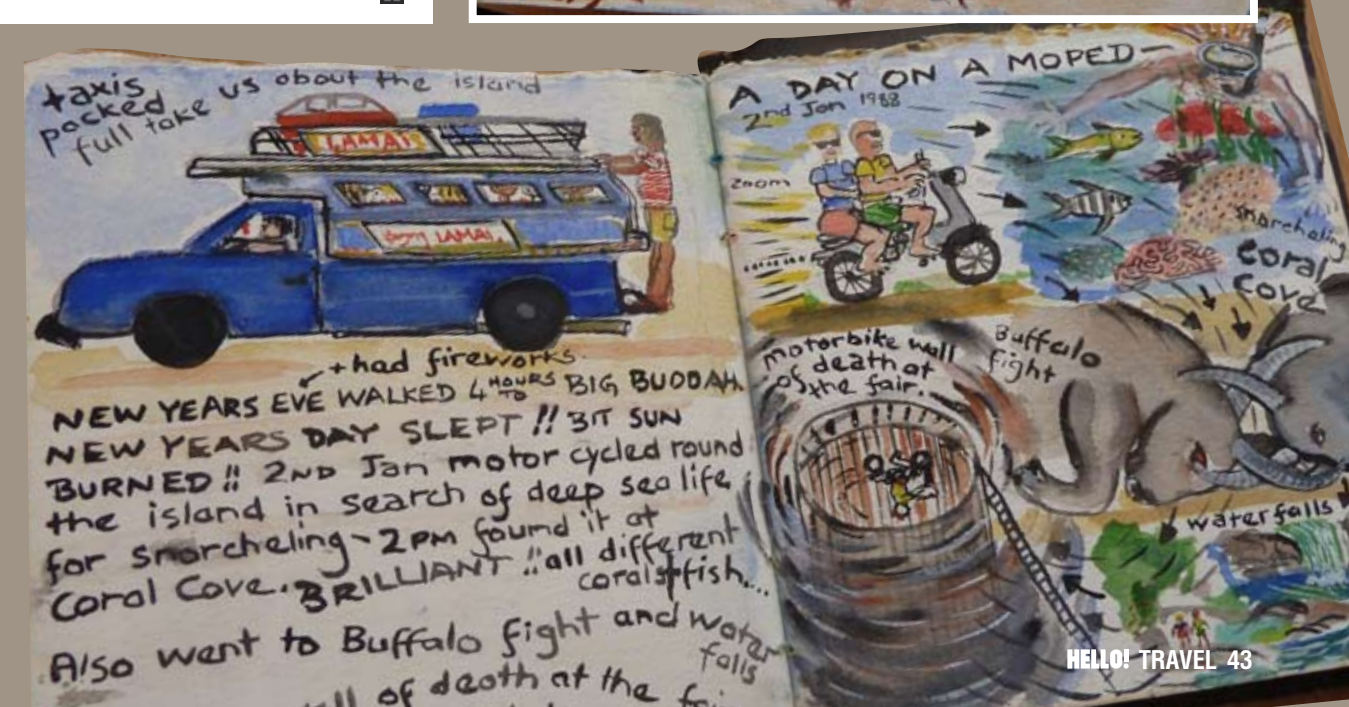 taxis
packed
full take us about the island
LAMAI
LAMAI
+ had fireworks
NEW YEARS EVE WALKED 4 HOURS TO BIG BUDDAH.
NEW YEARS DAY SLEPT !! BIT SUN
BURNED !! 2ND Jan motor cycled round
the island in search of deep sea life
for snorcheling - 2PM found it at
Coral Cove. BRILLIANT !! all different
corals + fish...
Also went to Buffalo fight and water
falls
of death at the
A DAY ON A MOPED -
2nd Jan 1988
zoom
snorcheling
Coral
Cove
motorbike wall
of death at
the fair.
Buffalo
fight
waterfalls
HELLO! TRAVEL 43